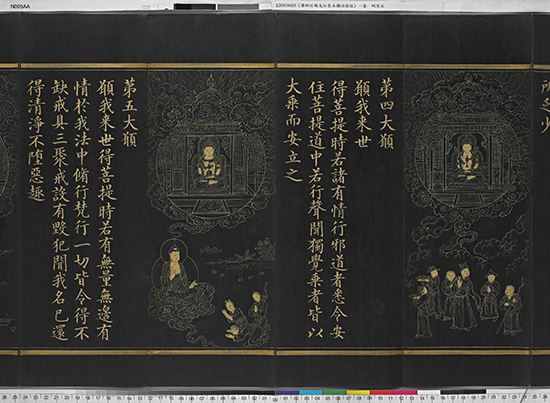 第四大願
願我来世
得菩提時若諸有情行邪道者悉令安
住菩提道中若行聲聞獨覺乗者皆以
大乗而安立之
第五大願
願我来世得菩提時若有無量無邊有
情於我法中脩行梵行一切皆令得不
缺戒具三聚戒設有毀犯聞我名已還
得清淨不墮惡趣
N005AA